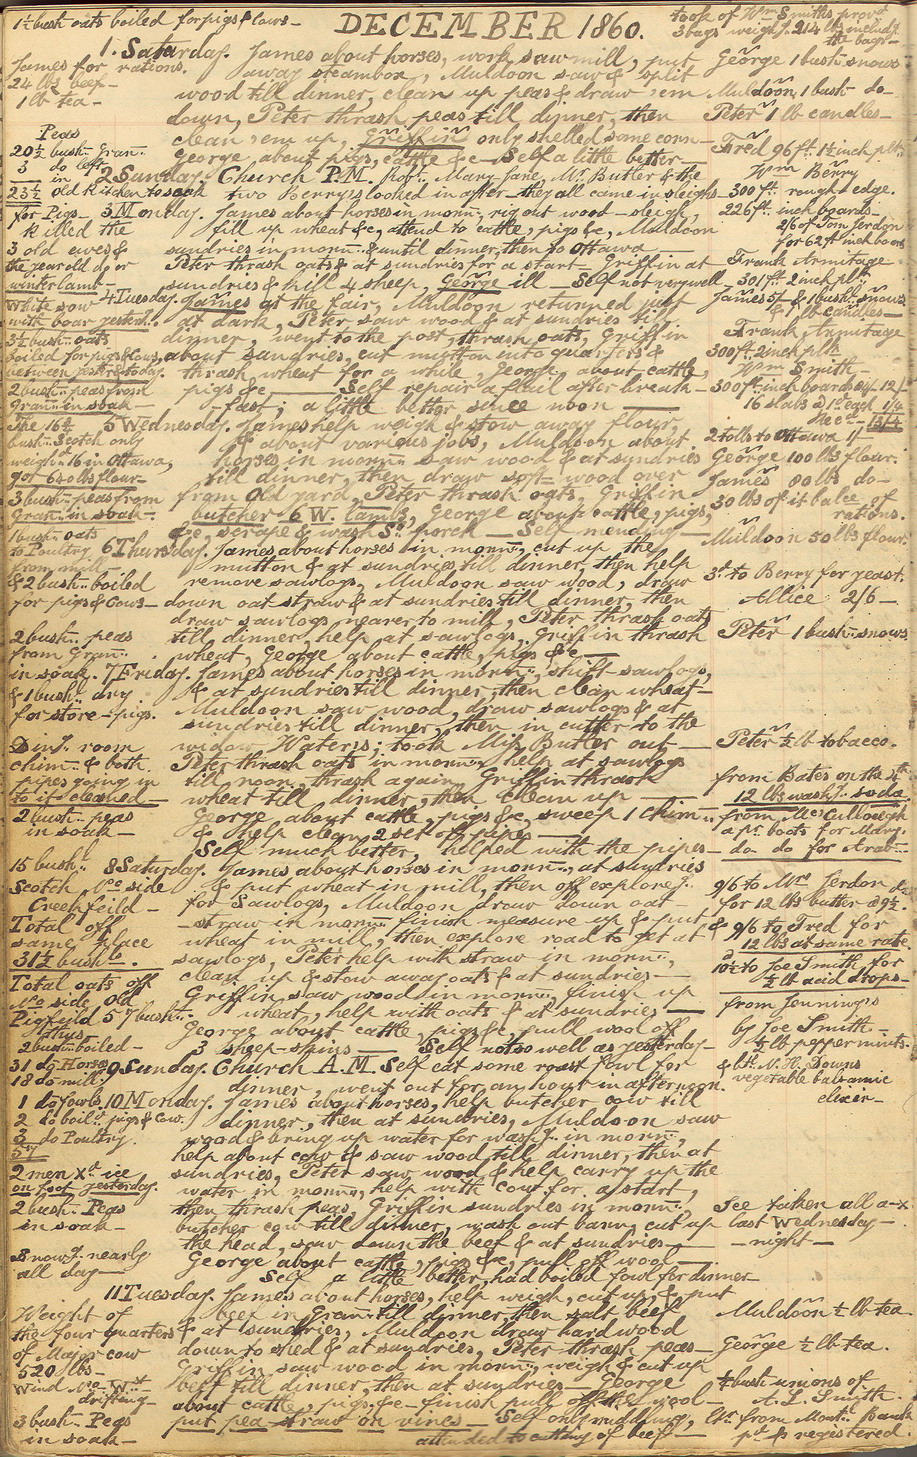 1½ bush oats boiled for pigs & cows –
DECEMBER 1860.
took of Wm Smiths prov.d
3 bags weigh.g 214 lbs includ.g
the bags –
James for rations.
24 lbs beef –
1 lb tea –
1. Saturday. James about horses, work saw mill, put
away steambox, Muldoon saw & split
wood till dinner, clean up peas & draw 'em
down, Peter thrash peas till dinner, then
clean 'em up, Griffin only shelled some corn –
George, about pigs, cattle &c – Self a little better –
George 1 bush snows
Muldoon 1 bush do –
Peter 1 lb candles –
Fred 96 ft. 1½ inch plk.
Wm Berry
300 ft. rough edge.
226 ft. inch boards –
2/6 of Tom Jerdon
for 62 ft inch boards
Peas
20½ bush. Gran.
3 do left
in
23½ old kitchen to soak
for Pigs –
2 Sunday. Church P.M. Mary Jane, Mr. Butler & the
two Berrys looked in after – they all came in sleighs –
Killed the
3 old ewes &
the year old do or
winter lamb –
3 Monday. James about horses in morn.g rig out wood – sleigh,
fill up wheat &c, attend to cattle, pigs &c, Muldoon
sundries in morn.g & until dinner, then to Ottawa
Peter thrash oats & at sundries for a start – Griffin at
sundries & kill 4 sheep, George ill – Self not very well –
Frank Armitage
301 ft. 2 inch plk
James 5 & 1 bush. snows
& 1 lb candles –
White sow
with boar yesterd.
3½ bush. oats
boiled for pigs & cows,
between yester & today.
2 bush. peas from
Gran. in soak –
4 Tuesday. James at the fair, Muldoon returned just
at dark, Peter saw wood & at sundries till
dinner, went to the post, thrash oats, Griffin
about sundries, cut mutton into quarters &
thrash wheat for a while, George, about cattle,
pigs &c – Self repair a flail after break –
– fast; a little better since noon –
Frank Armitage
300 ft. 2 inch plk
Wm Smith –
300 ft. inch boards
16 slabs @ 1d each 1/4
13/4
The 16½
bush. Scotch only
weigh.d 16 in Ottawa,
got 640 lbs flour –
3 bush. peas from
Gran. in soak –
5 Wednesday. James help weigh & stow away flour,
& about various jobs, Muldoon about
horses in morn.g saw wood & at sundries
till dinner, then draw soft – wood over
from old yard, Peter thrash oats, Griffin
butcher 6 W. lambs, George about cattle, pigs,
&c, scrape & wash St. porch – Self mending –
2 tolls to Ottawa 1/ –
George 100 lbs flour.
James 80 lbs do –
30 lbs of it balce of
rations.
Muldoon 50 lbs flour.
1 bush. oats
to Poultry
from mill
& 2 bush. boiled
for pigs & cows –
6 Thursday. James about horses in morn.g, cut up the
mutton & at sundries till dinner, then help
remove sawlogs, Muldoon saw wood, draw
down oat straw & at sundries till dinner, then
draw sawlogs nearer to mill, Peter thrash oats
till dinner, help at sawlogs, Griffin thrash
wheat, George about cattle, pigs &c –
3d to Berry for yeast.
Allice 2/6 –
Peter 1 bush. snows.
2 bush. peas
from Gran.
in soak.
& 1 bush. dry
for store – pigs.
7 Friday. James about horses in morn.g, shift sawlogs,
& at sundries till dinner, then clean wheat –
Muldoon saw wood, draw sawlogs & at
sundries till dinner, then in cutter to the
widow Waters; took Miss Butler out –
Peter thrash oats in morn.g help at sawlogs
till noon, thrash again, Griffin thrash
wheat till dinner, then clean up –
George about cattle, pigs &c, sweep 1 chim..
& help clean 2 set of pipes –
Self much better, helped with the pipes –
Peter ½ lb tobacco.
from Bates on the 4th
12 lbs wash.g soda
from McCullough
a pr. boots for Mary.
do do for Arab –
Din.g room
chim. & both
pipes going in
to it cleaned –
2 bush. peas
in soak –
15 bush.
Scotch No. side
Creekfeild –
Total off
same place
31½ bush. –
8 Saturday. James about horses in morn.g, at sundries
& put wheat in mill, then off explore.g
for sawlogs, Muldoon draw down oat –
– straw in morn.g finish measure up & put
wheat in mill, then explore road to get at
sawlogs, Peter help with straw in morn.g,
clean up & stow away oats & at sundries –
Griffin saw wood in morn.g, finish up
wheat, help with oats & at sundries –
George about cattle, pigs &c, pull wool off
3 sheep – skins – Self not so well as yesterday –
9/6 to Mrs Jerdon
for 12 lbs butter @ 9½.
& 9/6 to Fred for
12 lbs at same rate
10½ to Joe Smith for
½ lb acid drops –
from Jennings
by Joe Smith –
½ lb peppermints.
& btl. N. H. Downs
vegetable balsamic
elixir –
Total oats off
No. side Old
Pigfeild 57 bush.
thus
2 bush. boiled –
31 do Horses
18 do mill
1 do fowls.
2 do boil.d pigs & Cow.
3 do Poultry.
57
9 Sunday. Church A.M. Self eat some roast fowl for
dinner, went out for an hour in afternoon.
10 Monday. James about horses, help butcher cow till
dinner, then at sundries, Muldoon saw
wood & bring up water for wash.g in morn.g,
help about cow & saw wood till dinner, then at
sundries, Peter saw wood & help carry up the
water in morn.g, help with cow for a start,
then thrash peas, Griffin sundries in morn.g,
butcher cow till dinner, wash out barn, cut up
the head, saw down the beef & at sundries –
George about cattle, pigs &c, pull off wool –
Self a little better, had boiled fowl for dinner
2 men xd ice
on foot yesterday.
2 bush. Peas
in soak –
Snow.g nearly
all day –
Ice taken all a – x
last Wednesday –
– night –
Weight of
the four quarters
of Major cow
520 lbs –
Wind No. Wst –
drifting –
3 bush. Peas
in soak –
11 Tuesday. James about horses, help weigh, cut up, & put
beef in Gran. till dinner, then salt beef
& at sundries, Muldoon draw hard wood
down to shed & at sundries, Peter thrash peas –
Griffin saw wood in morn.g, weigh & cut up
beef till dinner, then at sundries – George
about cattle, pigs &c – finish pull.g off the wool –
put pea – straw on vines – Self only middling,
attended to cutting of beef –
Muldoon ½ lb tea –
George ½ lb tea.
¼ bush onions of
A. L. Smith –
Ltr. from Mont. Bank
pd & registered.